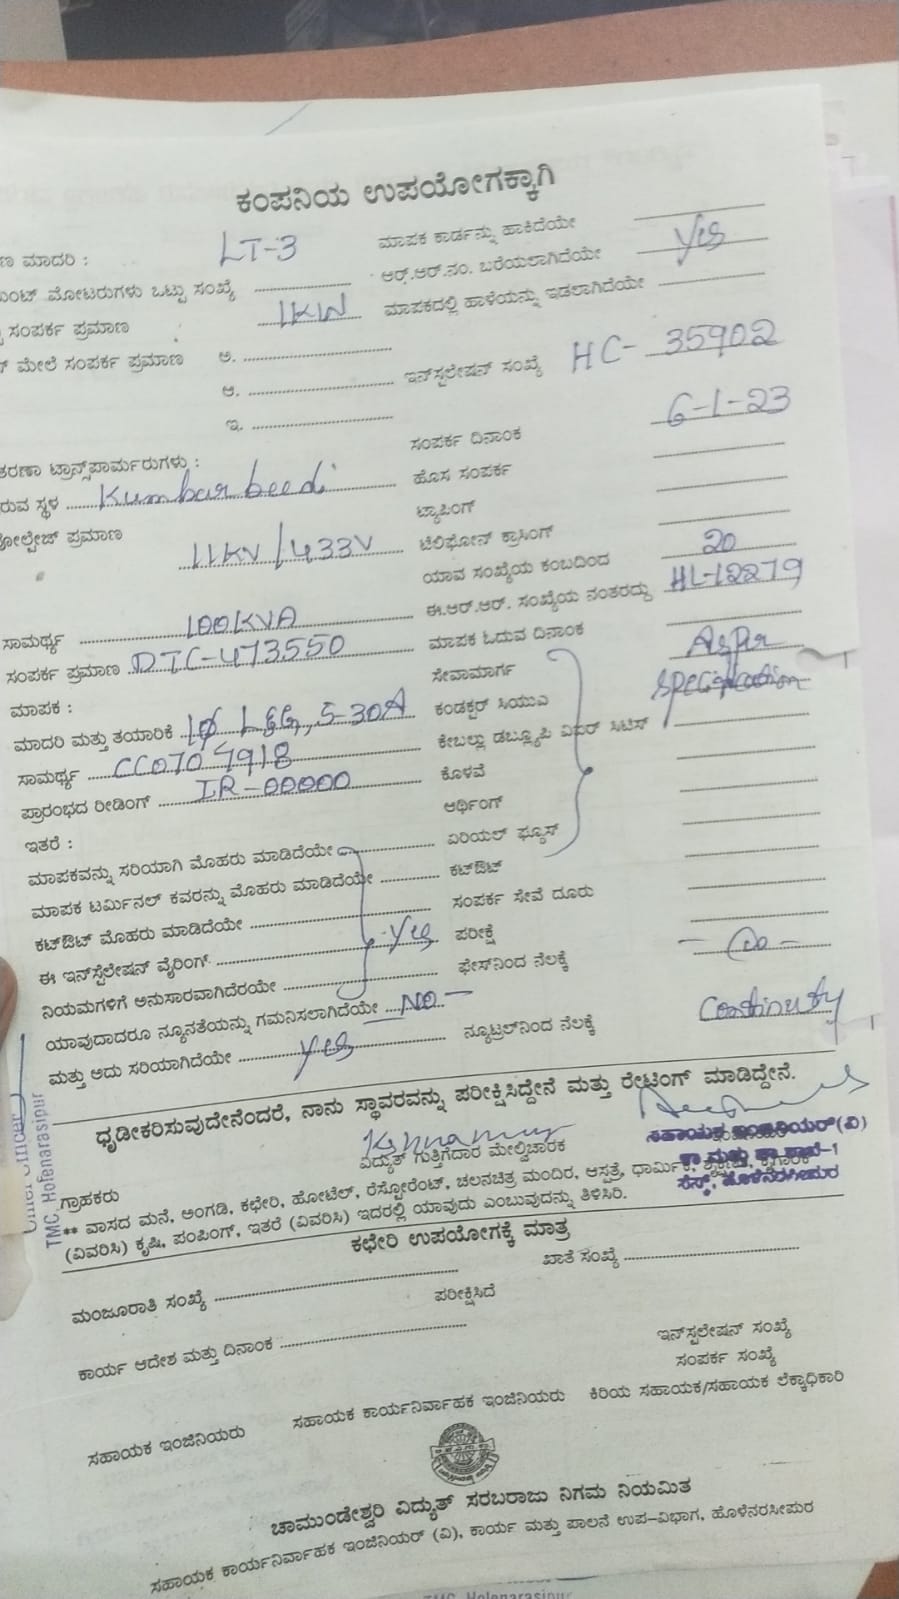 ಕಂಪನಿಯ ಉಪಯೋಗಕ್ಕಾಗಿ
ಣ ಮಾದರಿ : LT-3 ಮಾಪಕ ಕಾರ್ಡನ್ನು ಹಾಕಿದೆಯೇ
ಮೋಟರುಗಳು ಒಟ್ಟು ಸಂಖ್ಯೆ ಆರ್.ಆರ್.ನಂ. ಬರೆಯಲಾಗಿದೆಯೇ Yes
ಸಂಪರ್ಕ ಪ್ರಮಾಣ 1KW ಮಾಪಕದಲ್ಲಿ ಹಾಳೆಯನ್ನು ಇಡಲಾಗಿದೆಯೇ
ಮೇಲೆ ಸಂಪರ್ಕ ಪ್ರಮಾಣ ಅ.
ಆ. ಇನ್‌ಸ್ಟಲೇಷನ್ ಸಂಖ್ಯೆ HC- 35902
ಇ.
ಸಂಪರ್ಕ ದಿನಾಂಕ 6-1-23
ತರಣಾ ಟ್ರಾನ್ಸ್‌ಪಾರ್ಮರುಗಳು : ಹೊಸ ಸಂಪರ್ಕ
ರುವ ಸ್ಥಳ Kumbar beedi ಟ್ಯಾಪಿಂಗ್
ವೋಲ್ಟೇಜ್ ಪ್ರಮಾಣ 11KV/433V ಟೆಲಿಫೋನ್ ಕ್ರಾಸಿಂಗ್
ಯಾವ ಸಂಖ್ಯೆಯ ಕಂಬದಿಂದ 20
ಸಾಮರ್ಥ್ಯ 100KVA ಈ.ಆರ್.ಆರ್. ಸಂಖ್ಯೆಯ ನಂತರದ್ದು HL-12279
ಸಂಪರ್ಕ ಪ್ರಮಾಣ DTC-473550 ಮಾಪಕ ಓದುವ ದಿನಾಂಕ
ಮಾಪಕ : ಸೇವಾಮಾರ್ಗ As per
ಮಾದರಿ ಮತ್ತು ತಯಾರಿಕೆ 1φ L&G, 5-30A ಕಂಡಕ್ಟರ್ ಸಿಯುಎ specification
ಸಾಮರ್ಥ್ಯ CC0707918 ಕೇಬಲ್ಲು ಡಬ್ಲ್ಯೂಪಿ ವಿಐಆರ್ ಸಿಟಿಸ್
ಪ್ರಾರಂಭದ ರೀಡಿಂಗ್ IR-00000 ಕೊಳವೆ
ಇತರೆ : ಅರ್ಥಿಂಗ್
ಮಾಪಕವನ್ನು ಸರಿಯಾಗಿ ಮೊಹರು ಮಾಡಿದೆಯೇ ಏರಿಯಲ್ ಫ್ಯೂಸ್
ಮಾಪಕ ಟರ್ಮಿನಲ್ ಕವರನ್ನು ಮೊಹರು ಮಾಡಿದೆಯೇ ಕಟ್‌ಔಟ್
ಕಟ್‌ಔಟ್ ಮೊಹರು ಮಾಡಿದೆಯೇ ಸಂಪರ್ಕ ಸೇವೆ ದೂರು
ಈ ಇನ್‌ಸ್ಟೆಲೇಷನ್ ವೈರಿಂಗ್ Yes ಪರೀಕ್ಷೆ
ನಿಯಮಗಳಿಗೆ ಅನುಸಾರವಾಗಿದೆರಯೇ ಫೇಸ್‌ನಿಂದ ನೆಲಕ್ಕೆ
ಯಾವುದಾದರೂ ನ್ಯೂನತೆಯನ್ನು ಗಮನಿಸಲಾಗಿದೆಯೇ NO
ಮತ್ತು ಅದು ಸರಿಯಾಗಿದೆಯೇ Yes ನ್ಯೂಟ್ರಲ್‌ನಿಂದ ನೆಲಕ್ಕೆ Continuty
ಧೃಡೀಕರಿಸುವುದೇನೆಂದರೆ, ನಾನು ಸ್ಥಾವರವನ್ನು ಪರೀಕ್ಷಿಸಿದ್ದೇನೆ ಮತ್ತು ರೇಟಿಂಗ್ ಮಾಡಿದ್ದೇನೆ.
ಗ್ರಾಹಕರು ವಿದ್ಯುತ್ ಗುತ್ತಿಗೆದಾರ ಮೇಲ್ವಿಚಾರಕ
ಸಹಾಯಕ ಇಂಜಿನಿಯರ್(ವಿ)
ಕಾ ಮತ್ತು ಪಾ ಶಾಖೆ-1
ಸೆಸ್ಕ್, ಹೊಳೆನರಸೀಪುರ
Chief Officer
TMC Holenarasipur
** ವಾಸದ ಮನೆ, ಅಂಗಡಿ, ಕಛೇರಿ, ಹೋಟೆಲ್, ರೆಸ್ಟೋರೆಂಟ್, ಚಲನಚಿತ್ರ ಮಂದಿರ, ಆಸ್ಪತ್ರೆ, ಧಾರ್ಮಿಕ,
(ವಿವರಿಸಿ) ಕೃಷಿ, ಪಂಪಿಂಗ್, ಇತರೆ (ವಿವರಿಸಿ) ಇದರಲ್ಲಿ ಯಾವುದು ಎಂಬುವುದನ್ನು ತಿಳಿಸಿರಿ.
ಕಛೇರಿ ಉಪಯೋಗಕ್ಕೆ ಮಾತ್ರ
ಮಂಜೂರಾತಿ ಸಂಖ್ಯೆ ಖಾತೆ ಸಂಖ್ಯೆ
ಪರೀಕ್ಷಿಸಿದೆ
ಕಾರ್ಯ ಆದೇಶ ಮತ್ತು ದಿನಾಂಕ
ಇನ್‌ಸ್ಟಲೇಷನ್ ಸಂಖ್ಯೆ
ಸಂಪರ್ಕ ಸಂಖ್ಯೆ
ಸಹಾಯಕ ಇಂಜಿನಿಯರು ಸಹಾಯಕ ಕಾರ್ಯನಿರ್ವಾಹಕ ಇಂಜಿನಿಯರು ಕಿರಿಯ ಸಹಾಯಕ/ಸಹಾಯಕ ಲೆಕ್ಕಾಧಿಕಾರಿ
ಚಾಮುಂಡೇಶ್ವರಿ ವಿದ್ಯುತ್ ಸರಬರಾಜು ನಿಗಮ ನಿಯಮಿತ
ಸಹಾಯಕ ಕಾರ್ಯನಿರ್ವಾಹಕ ಇಂಜಿನಿಯರ್ (ವಿ), ಕಾರ್ಯ ಮತ್ತು ಪಾಲನೆ ಉಪ-ವಿಭಾಗ, ಹೊಳೆನರಸೀಪುರ
TMC, Holenarasipur